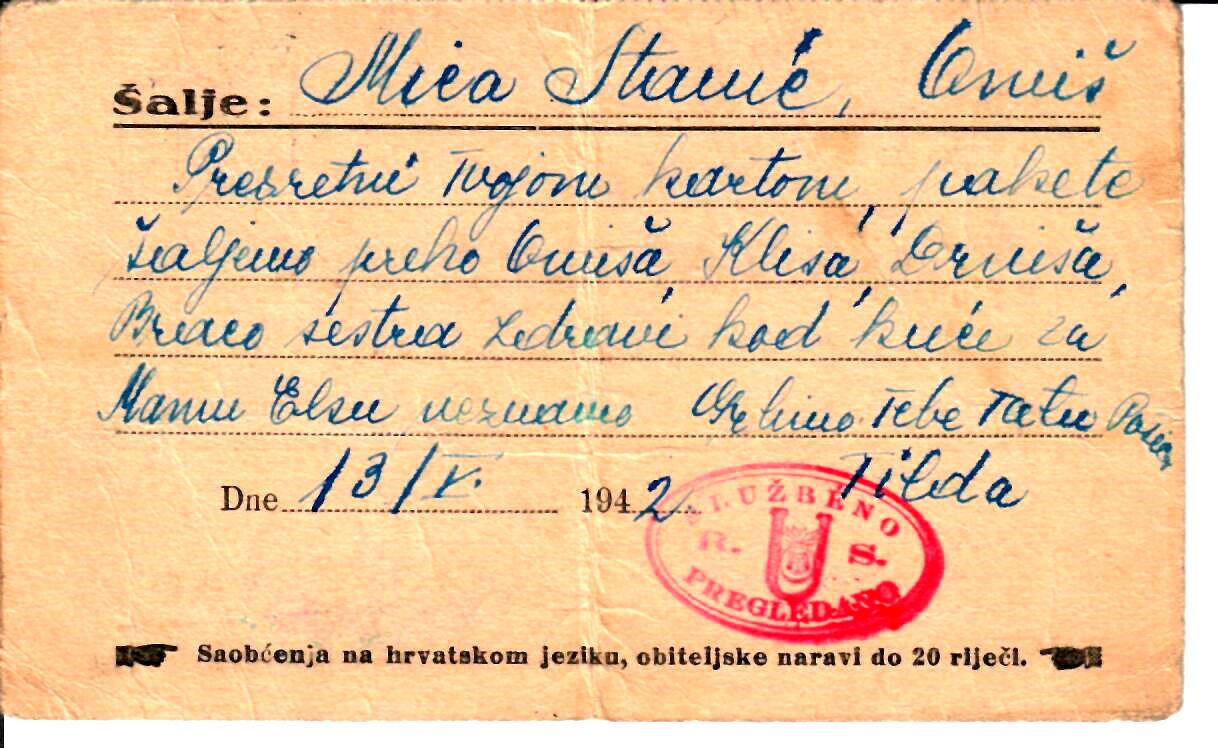 Šalje: Mica Stanić, Omiš
Presretni Tvojom kartom, pakete
šaljemo preko Omiša, Klisa, Drniša,
Braco sestra zdravi kod kuće za
Mamu Elsu neznamo Grlimo Tebe Tatu
Tilda
Dne 13/V. 1942.
SLUŽBENO
R. U S.
PREGLEDANO
Saobćenja na hrvatskom jeziku, obiteljske naravi do 20 riječi.